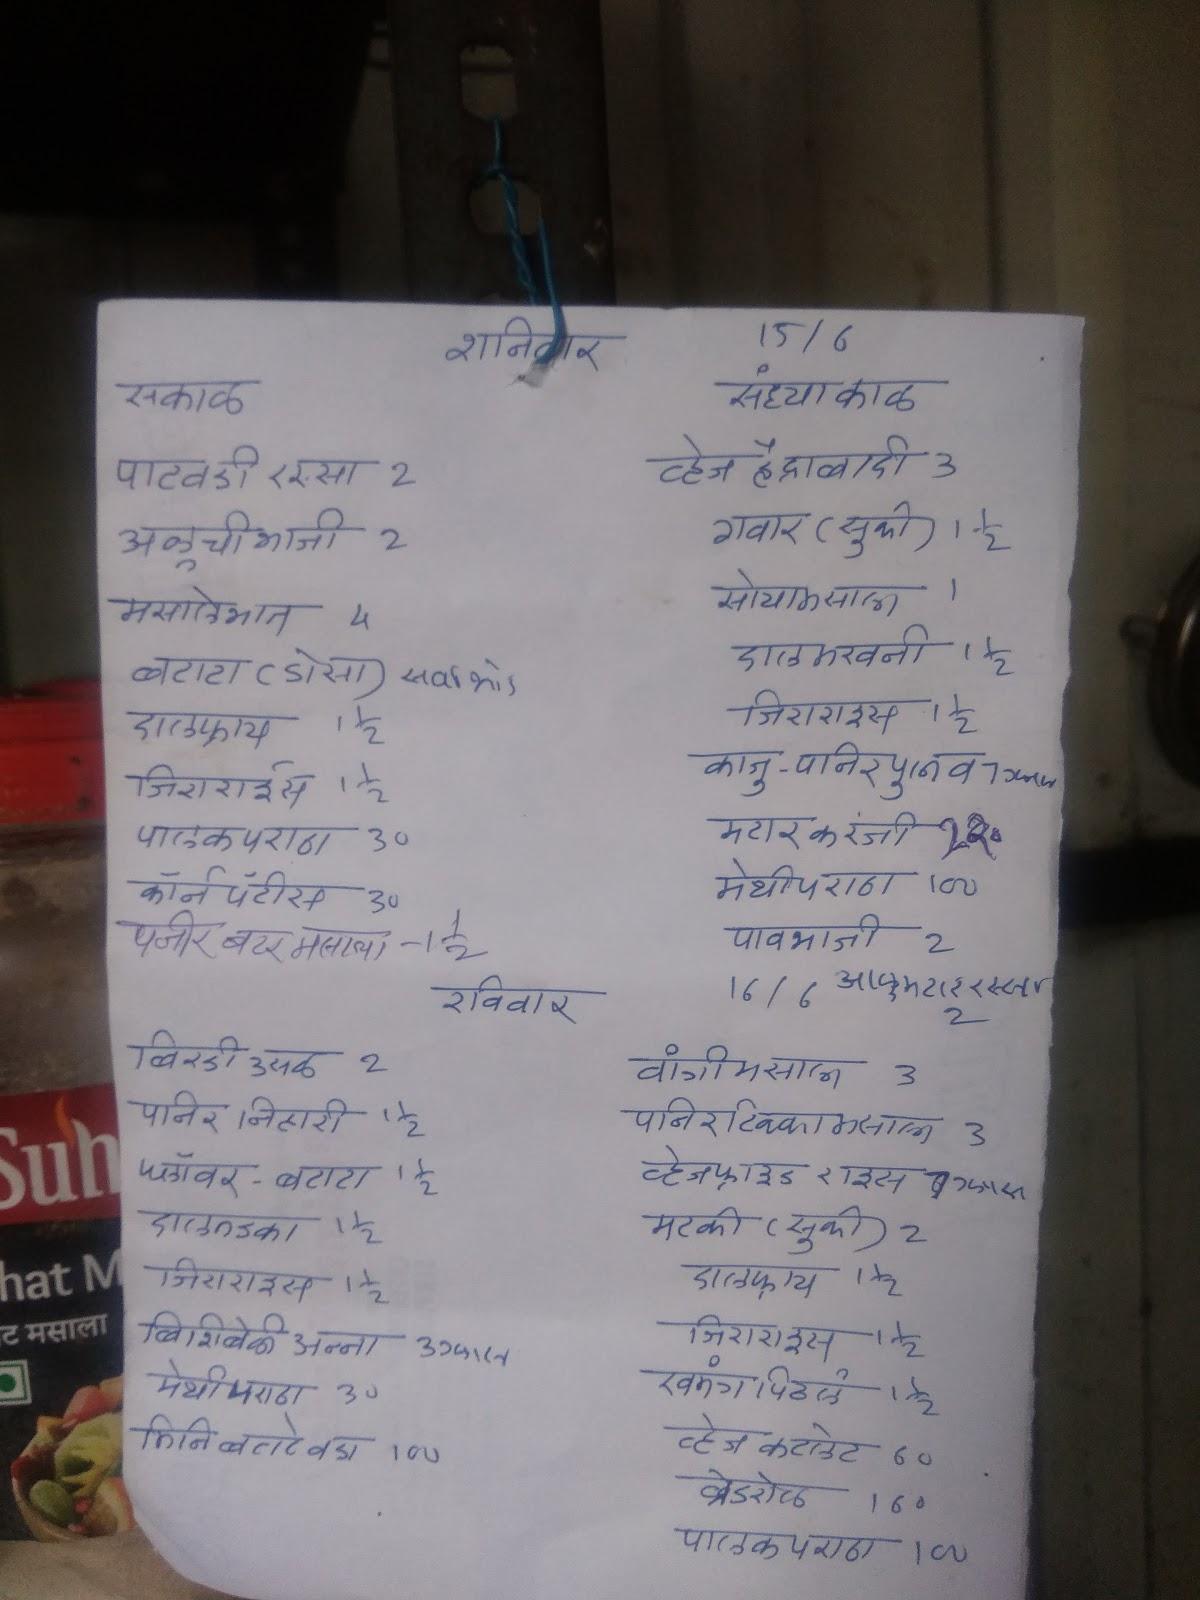 शनिवार 15/6
सकाळ
पाटवडी रस्सा 2
अळूची भाजी 2
मसालेभात 4
बटाटा (डोसा)
दालफ्राय 1 1/2
जिराराईस 1 1/2
पालकपराठा 30
कॉर्न पॅटीस 30
पनीर बटर मसाला - 1 1/2
संध्याकाळ
व्हेज हैद्राबादी 3
गवार (सुकी) 1 1/2
सोयामसाला 1
दालमखनी 1 1/2
जिराराइस 1 1/2
काजु - पानिर पुलाव
मटार करंजी
मेथीपराठा 100
पावभाजी 2
आलुमटार रस्सा 2
रविवार 16/6
बिरडी उसळ 2
पानिर निहारी 1 1/2
फ्लॉवर - बटाटा 1 1/2
दालतडका 1 1/2
जिराराइस 1 1/2
बिशिबेळी अन्ना
मेथीपराठा 30
मिनि बटाटे वडा 100
वांगीमसाला 3
पानिरटिक्कामसाला 3
व्हेजफ्राइड राइस
मटकी (सुकी) 2
दालफ्राय 1 1/2
जिराराइस 1 1/2
खमंग पिठलं 1 1/2
व्हेज कटलेट 60
ब्रेडरोल 160
पालकपराठा 100
Suh
hat M
ट मसाला